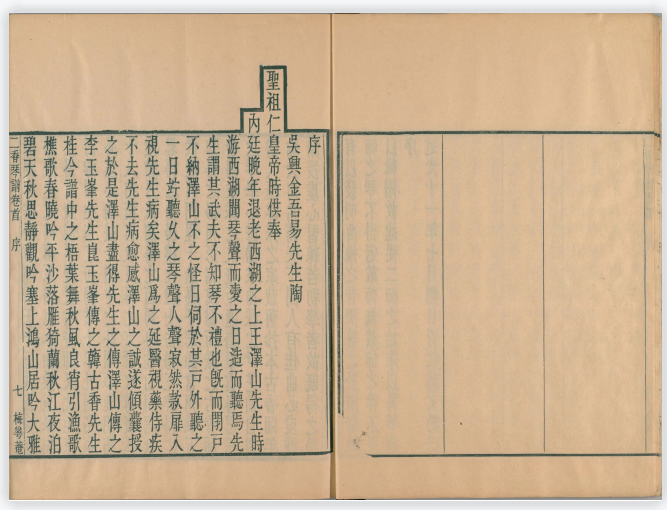 序
吳興金吾易先生陶
聖祖仁皇帝時供奉
内廷晚年退老西湖之上王澤山先生時
游西湖聞琴聲而愛之日造而聽焉先
生謂其武夫不知琴不禮也旣而閉戸
不納澤山不之怪日伺於其戸外聽之
一日竚聽久之琴聲人聲寂然欵扉入
視先生病矣澤山爲之延醫視藥侍疾
不去先生病愈感澤山之誠遂傾囊授
之於是澤山盡得先生之傳澤山傳之
李玉峯先生崑玉峯傳之韓古香先生
桂今譜中之梧葉舞秋風良宵引漁歌
樵歌春曉吟平沙落雁猗蘭秋江夜泊
碧天秋思靜觀吟塞上鴻山居吟大雅
二香琴譜卷首 序 七